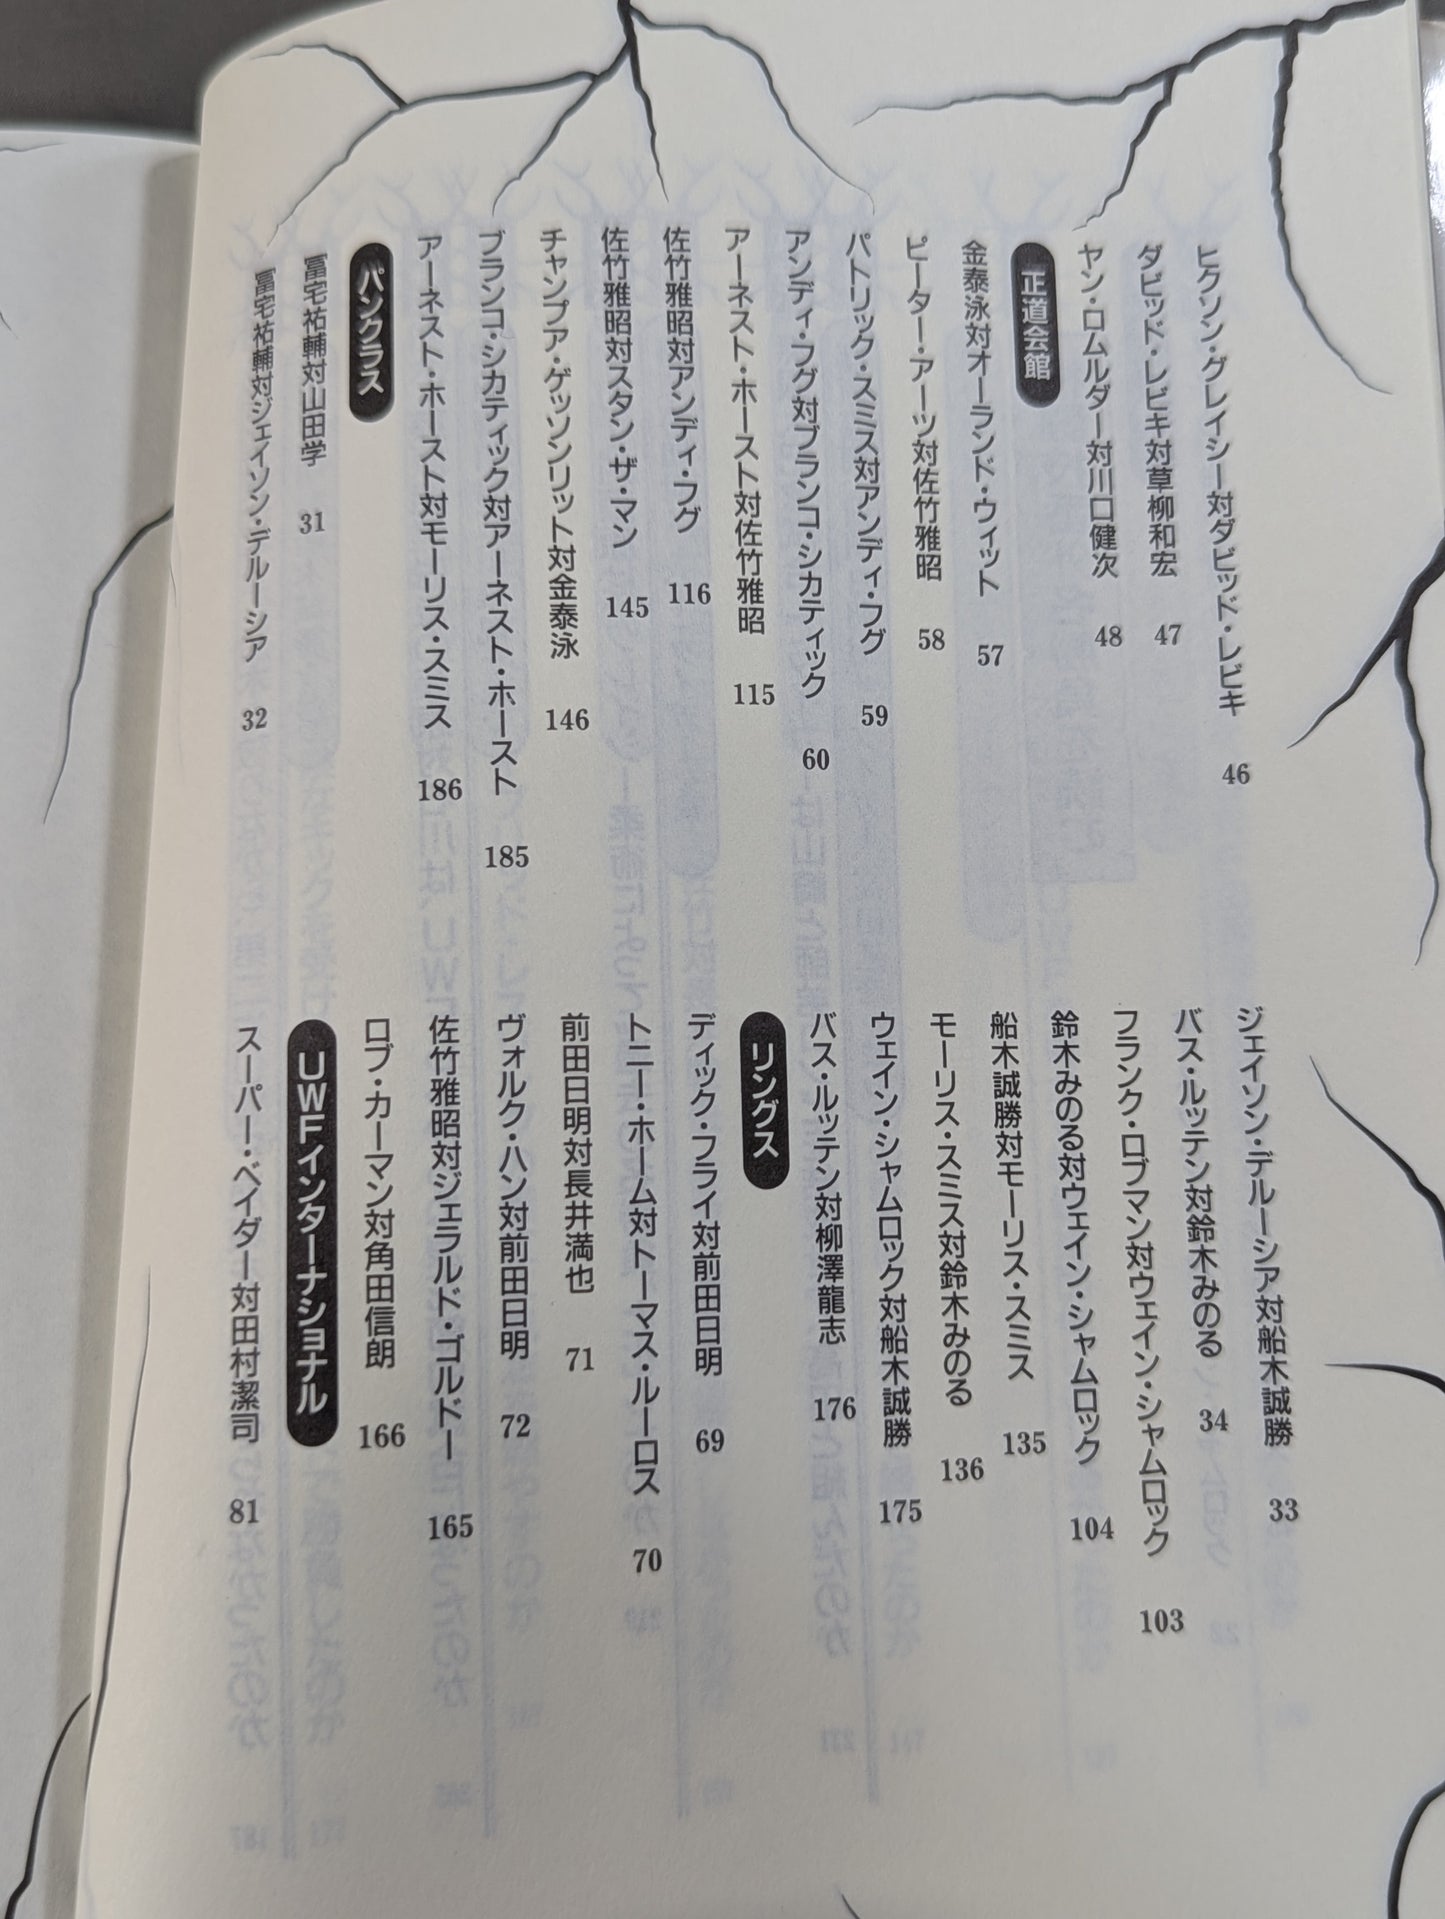 ヒクソン・グレイシー対ダビッド・レビキ 46
ダビッド・レビキ対草柳和宏 47
ヤン・ロムルダー対川口健次 48
正道会館
金泰泳対オーランド・ウィット 57
ピーター・アーツ対佐竹雅昭 58
パトリック・スミス対アンディ・フグ 59
アンディ・フグ対ブランコ・シカティック 60
アーネスト・ホースト対佐竹雅昭 115
佐竹雅昭対アンディ・フグ 116
佐竹雅昭対スタン・ザ・マン 145
チャンプア・ゲッソンリット対金泰泳 146
ブランコ・シカティック対アーネスト・ホースト 185
アーネスト・ホースト対モーリス・スミス 186
パンクラス
冨宅祐輔対山田学 31
冨宅祐輔対ジェイソン・デルーシア 32
ジェイソン・デルーシア対船木誠勝 33
バス・ルッテン対鈴木みのる 34
フランク・ロブマン対ウェイン・シャムロック 103
鈴木みのる対ウェイン・シャムロック 104
船木誠勝対モーリス・スミス 135
モーリス・スミス対鈴木みのる 136
ウェイン・シャムロック対船木誠勝 175
バス・ルッテン対柳澤龍志 176
リングス
ディック・フライ対前田日明 69
トニー・ホーム対トーマス・ルーロス 70
前田日明対長井満也 71
ヴォルク・ハン対前田日明 72
佐竹雅昭対ジェラルド・ゴルドー 165
ロブ・カーマン対角田信朗 166
UWFインターナショナル
スーパー・ベイダー対田村潔司 81